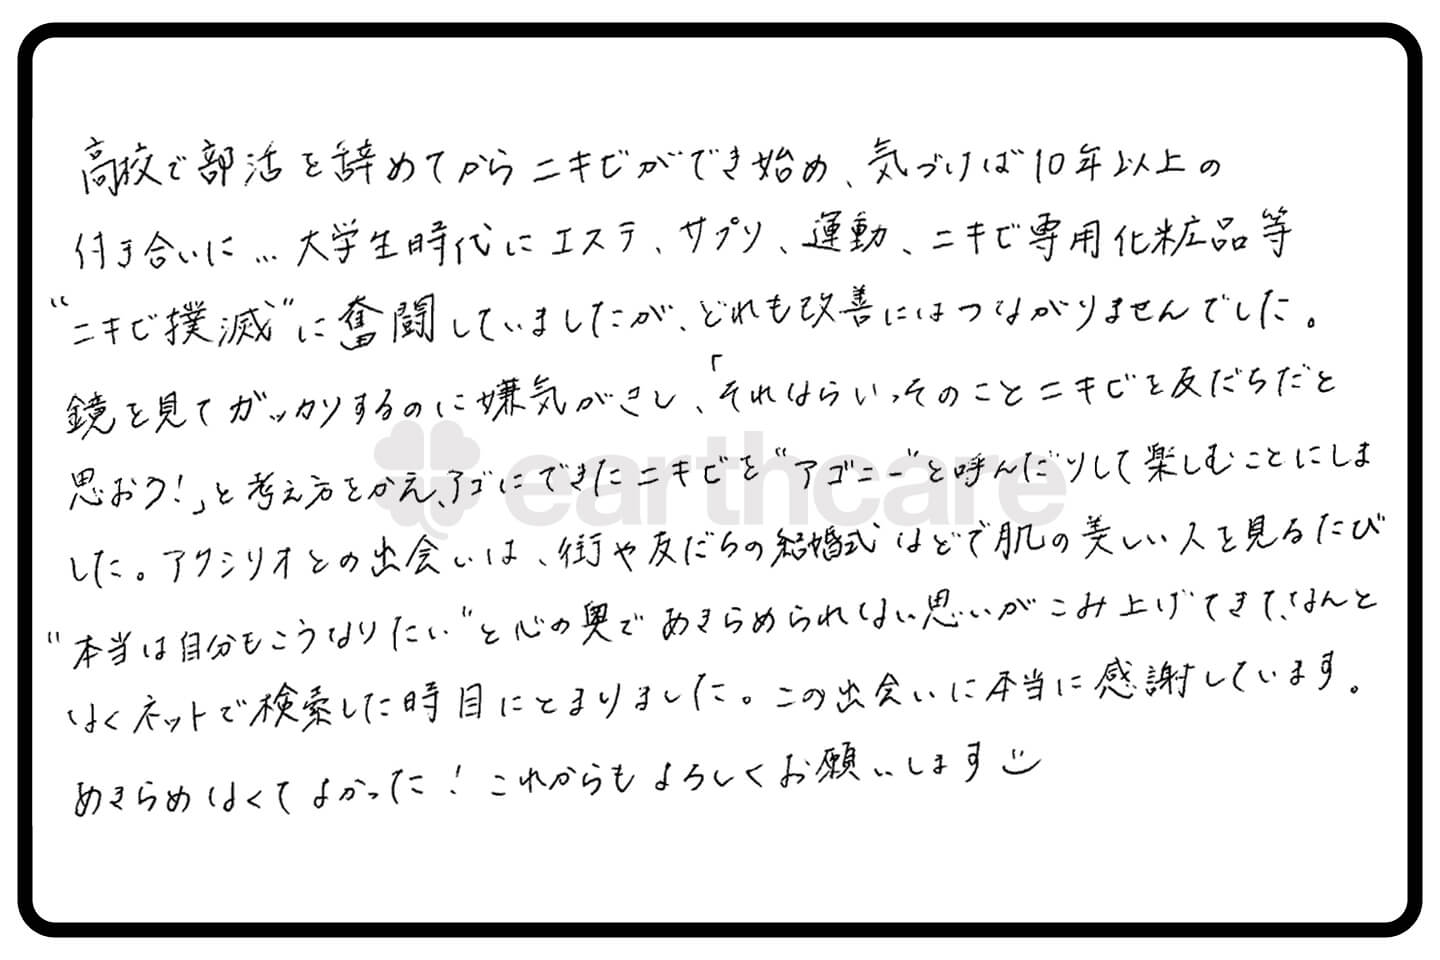 高校で部活を辞めてからニキビができ始め、気づけば10年以上の
付き合いに…大学生時代にエステ、サプリ、運動、ニキビ専用化粧品等
“ニキビ撲滅”に奮闘していましたが、どれも改善にはつながりませんでした。
鏡を見てガッカリするのに嫌気がさし、「それならいっそのことニキビを友だちだと
思おう!」と考え方をかえ、アゴにできたニキビを“アゴニー”と呼んだりして楽しむことにしま
した。アクシリオとの出会いは、街や友だちの結婚式などで肌の美しい人を見るたび
“本当は自分もこうなりたい”と心の奥であきらめられない思いがこみ上げてきて、なんと
なくネットで検索した時目にとまりました。この出会いに本当に感謝しています。
あきらめなくてよかった!これからもよろしくお願いします
earthcare